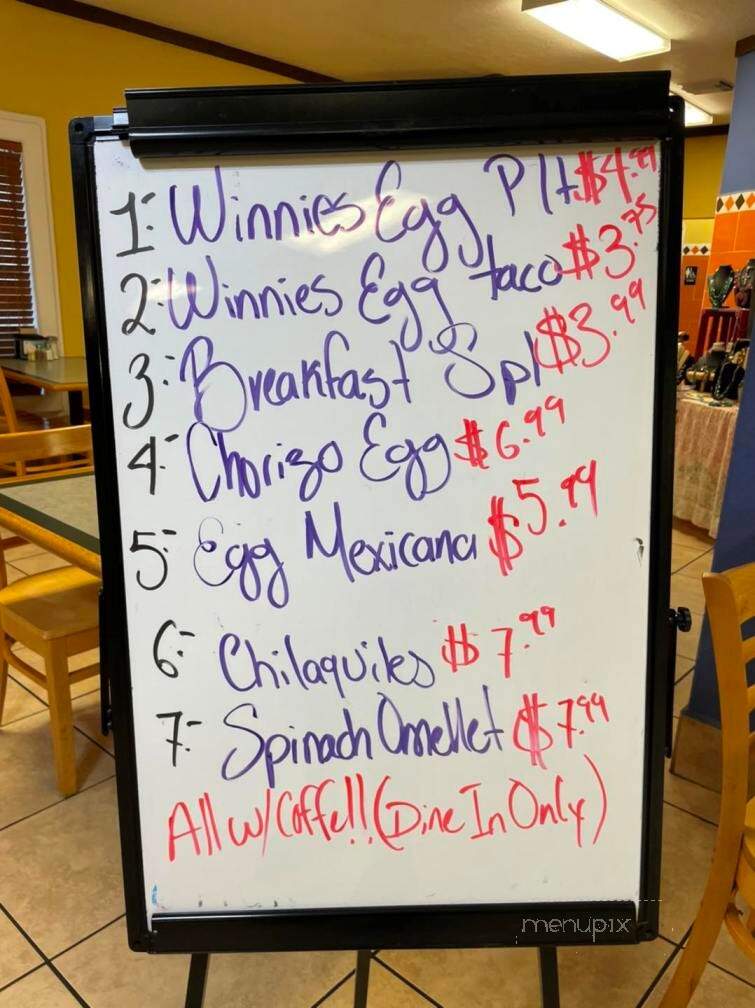 1- Winnies Egg Plt $4.99
2- Winnies Egg taco $3.75
3- Breakfast Spl $3.99
4- Chorizo Egg $6.99
5- Egg Mexicana $5.99
6- Chilaquiles $7.99
7- Spinach Omellet $7.99
All w/ Coffe!! (Dine In Only)
menupix